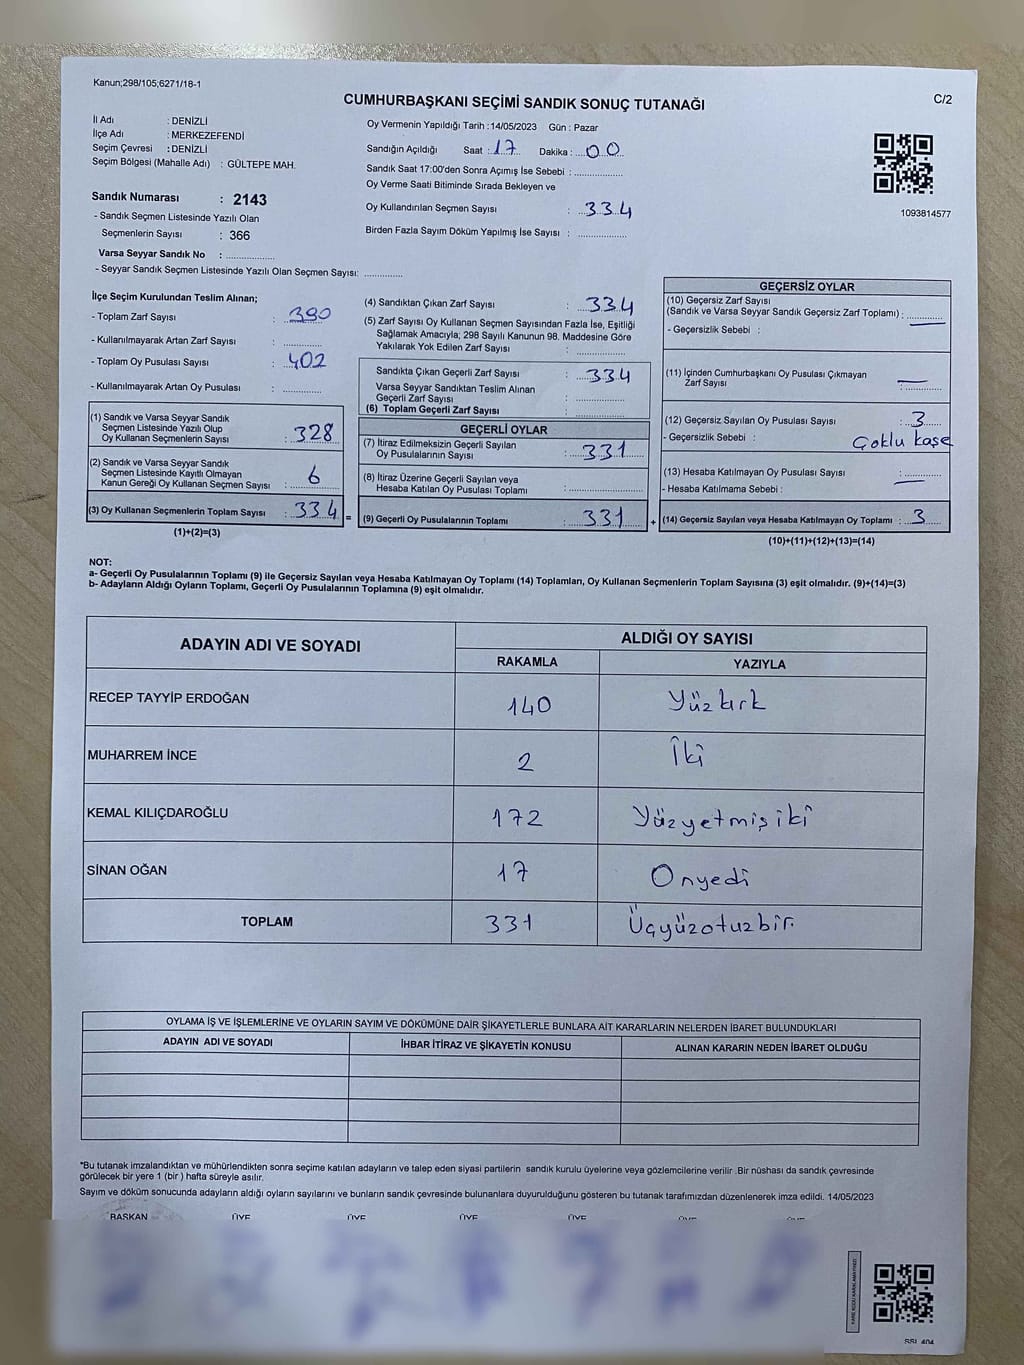 Kanun;298/105;6271/18-1
CUMHURBAŞKANI SEÇİMİ SANDIK SONUÇ TUTANAĞI
C/2
İl Adı : DENİZLİ
İlçe Adı : MERKEZEFENDİ
Seçim Çevresi : DENİZLİ
Seçim Bölgesi (Mahalle Adı) : GÜLTEPE MAH.
Sandık Numarası : 2143
- Sandık Seçmen Listesinde Yazılı Olan
Seçmenlerin Sayısı : 366
Varsa Seyyar Sandık No : ................
- Seyyar Sandık Seçmen Listesinde Yazılı Olan Seçmen Sayısı: .............
Oy Vermenin Yapıldığı Tarih :14/05/2023 Gün : Pazar
Sandığın Açıldığı Saat : 17 Dakika : 00
Sandık Saat 17:00'den Sonra Açımış İse Sebebi : ................
Oy Verme Saati Bitiminde Sırada Bekleyen ve
Oy Kullandırılan Seçmen Sayısı : 334
Birden Fazla Sayım Döküm Yapılmış İse Sayısı : ................
1093814577
İlçe Seçim Kurulundan Teslim Alınan;
- Toplam Zarf Sayısı : 390
- Kullanılmayarak Artan Zarf Sayısı : .............
- Toplam Oy Pusulası Sayısı : 402
- Kullanılmayarak Artan Oy Pusulası : .............
(1) Sandık ve Varsa Seyyar Sandık
Seçmen Listesinde Yazılı Olup
Oy Kullanan Seçmenlerin Sayısı : 328
(2) Sandık ve Varsa Seyyar Sandık
Seçmen Listesinde Kayıtlı Olmayan
Kanun Gereği Oy Kullanan Seçmen Sayısı : 6
(3) Oy Kullanan Seçmenlerin Toplam Sayısı : 334 =
(1)+(2)=(3)
(4) Sandıktan Çıkan Zarf Sayısı : 334
(5) Zarf Sayısı Oy Kullanan Seçmen Sayısından Fazla İse, Eşitliği
Sağlamak Amacıyla; 298 Sayılı Kanunun 98. Maddesine Göre
Yakılarak Yok Edilen Zarf Sayısı : .............
Sandıkta Çıkan Geçerli Zarf Sayısı : 334
Varsa Seyyar Sandıktan Teslim Alınan
Geçerli Zarf Sayısı : .............
(6) Toplam Geçerli Zarf Sayısı : .............
GEÇERLİ OYLAR
(7) İtiraz Edilmeksizin Geçerli Sayılan
Oy Pusulalarının Sayısı : 331
(8) İtiraz Üzerine Geçerli Sayılan veya
Hesaba Katılan Oy Pusulası Toplamı : .............
(9) Geçerli Oy Pusulalarının Toplamı : 331 +
GEÇERSİZ OYLAR
(10) Geçersiz Zarf Sayısı
(Sandık ve Varsa Seyyar Sandık Geçersiz Zarf Toplamı) : —
- Geçersizlik Sebebi :
(11) İçinden Cumhurbaşkanı Oy Pusulası Çıkmayan
Zarf Sayısı : —
(12) Geçersiz Sayılan Oy Pusulası Sayısı : 3
- Geçersizlik Sebebi : Çoklu kaşe
(13) Hesaba Katılmayan Oy Pusulası Sayısı : —
- Hesaba Katılmama Sebebi :
(14) Geçersiz Sayılan veya Hesaba Katılmayan Oy Toplamı : 3
(10)+(11)+(12)+(13)=(14)
NOT:
a- Geçerli Oy Pusulalarının Toplamı (9) ile Geçersiz Sayılan veya Hesaba Katılmayan Oy Toplamı (14) Toplamları, Oy Kullanan Seçmenlerin Toplam Sayısına (3) eşit olmalıdır. (9)+(14)=(3)
b- Adayların Aldığı Oyların Toplamı, Geçerli Oy Pusulalarının Toplamına (9) eşit olmalıdır.
ADAYIN ADI VE SOYADI ALDIĞI OY SAYISI
RAKAMLA YAZIYLA
RECEP TAYYİP ERDOĞAN 140 Yüzkırk
MUHARREM İNCE 2 İki
KEMAL KILIÇDAROĞLU 172 Yüzyetmişiki
SİNAN OĞAN 17 Onyedi
TOPLAM 331 Üçyüzotuzbir.
OYLAMA İŞ VE İŞLEMLERİNE VE OYLARIN SAYIM VE DÖKÜMÜNE DAİR ŞİKAYETLERLE BUNLARA AİT KARARLARIN NELERDEN İBARET BULUNDUKLARI
ADAYIN ADI VE SOYADI İHBAR İTİRAZ VE ŞİKAYETİN KONUSU ALINAN KARARIN NEDEN İBARET OLDUĞU
*Bu tutanak imzalandıktan ve mühürlendikten sonra seçime katılan adayların ve talep eden siyasi partilerin sandık kurulu üyelerine veya gözlemcilerine verilir .Bir nüshası da sandık çevresinde
görülecek bir yere 1 (bir ) hafta süreyle asılır.
Sayım ve döküm sonucunda adayların aldığı oyların sayılarını ve bunların sandık çevresinde bulunanlara duyurulduğunu gösteren bu tutanak tarafımızdan düzenlenerek imza edildi. 14/05/2023
BAŞKAN ÜYE ÜYE ÜYE ÜYE ÜYE ÜYE